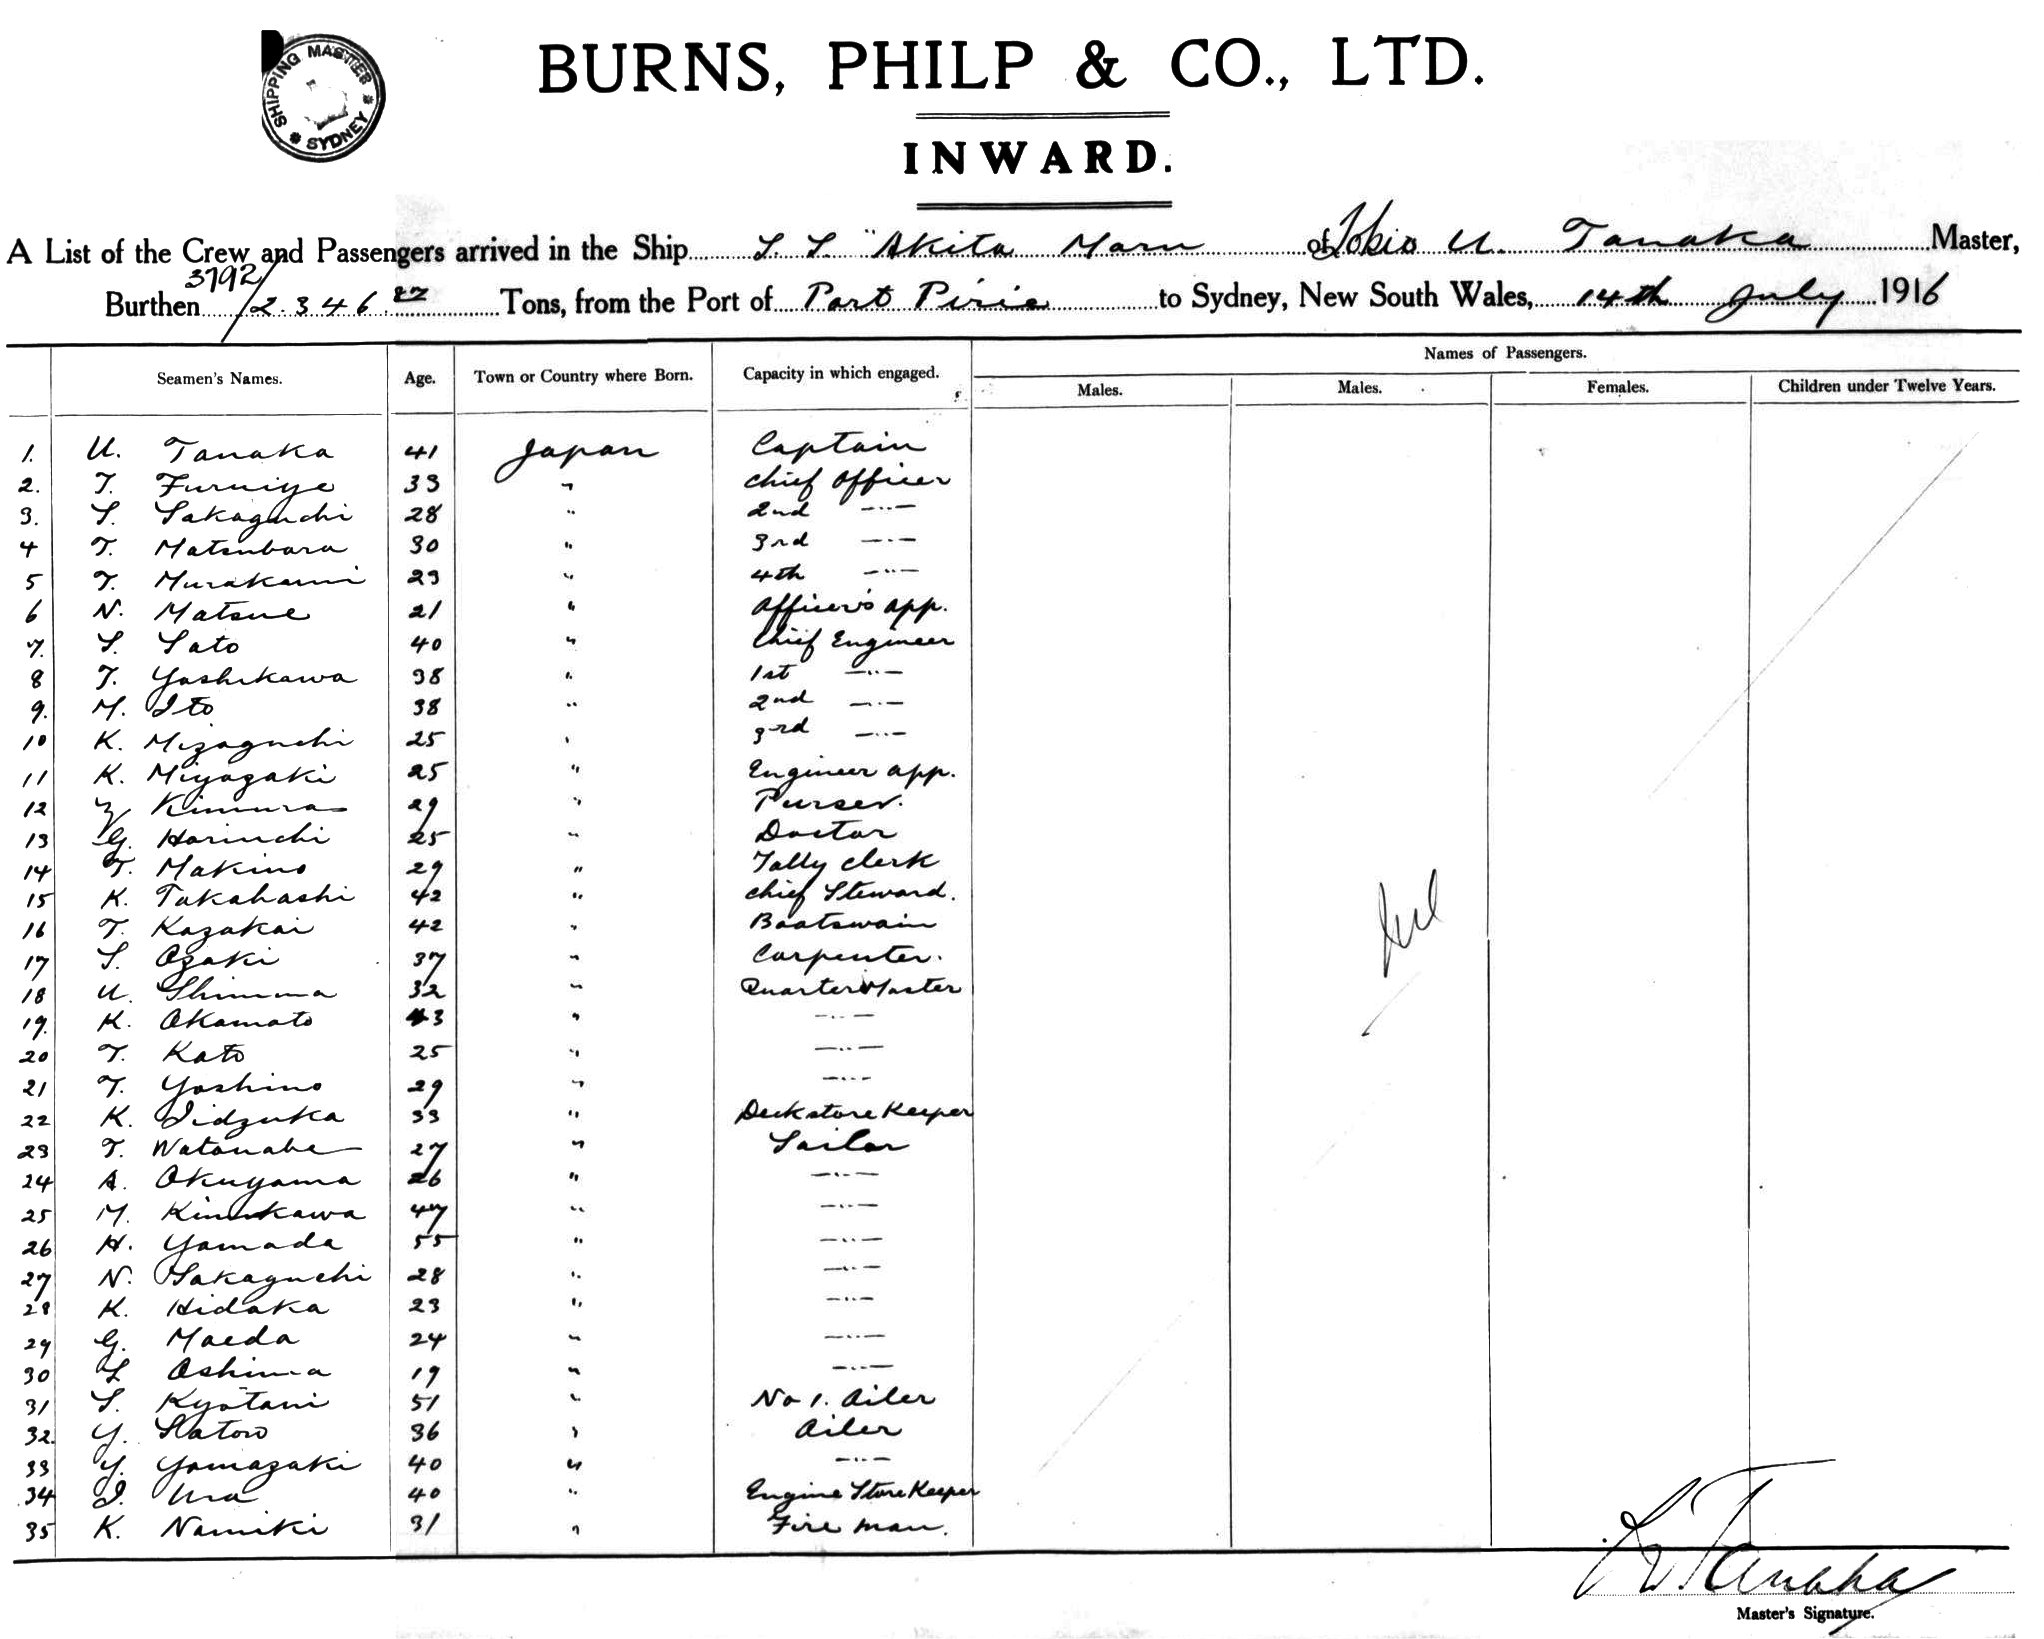 SHIPPING MASTER
SYDNEY
BURNS, PHILP & CO., LTD.
INWARD.
A List of the Crew and Passengers arrived in the Ship S. S. "Akita Maru of Tokio U. Tanaka Master,
3792/
Burthen 2.346.87 Tons, from the Port of Port Pirie to Sydney, New South Wales, 14th July 1916
Names of Passengers.
Seamen's Names. Age. Town or Country where Born. Capacity in which engaged. Males. Males. Females. Children under Twelve Years.
1. U. Tanaka 41 Japan Captain
2. T. Furuiye 33 " Chief Officer
3. S. Sakaguchi 28 " 2nd —"—
4 T. Matsubara 30 " 3rd —"—
5 T. Murakami 23 " 4th —"—
6 N. Matsue 21 " Officer's app.
7. S. Sato 40 " Chief Engineer
8 T. Yoshikawa 38 " 1st —"—
9. M. Ito 38 " 2nd —"—
10 K. Mizoguchi 25 " 3rd —"—
11 K. Miyazaki 25 " Engineer app.
12 Y Kimura 29 " Purser.
13 G. Horiuchi 25 " Doctor
14 T. Makino 29 " Tally clerk
15 K. Takahashi 42 " Chief Steward.
16 T. Kazakai 42 " Boatswain
17 S. Ozaki 37 " Carpenter.
18 U. Shimma 32 " Quarter Master
19. K. Okamoto 43 " —"—
20 T. Kato 25 " —"—
21 T. Yoshino 29 " —"—
22 K. Iidzuka 33 " Deckstore Keeper
23 T. Watanabe 27 " Sailor
24 A. Okuyama 26 " —"—
25 M. Kinukawa 47 " —"—
26 H. Yamada 55 " —"—
27 N. Sakaguchi 28 " —"—
28 K. Hidaka 23 " —"—
29 G. Maeda 24 " —"—
30 S Oshima 19 " —"—
31 S. Kyotani 51 " No 1. Oiler
32. Y. Satow 36 " Oiler
33 Y. Yamazaki 40 " —"—
34 I. Ura 40 " Engine Store Keeper
35 K. Namiki 31 " Fire man.
Nil
U. Tanaka
Master's Signature.